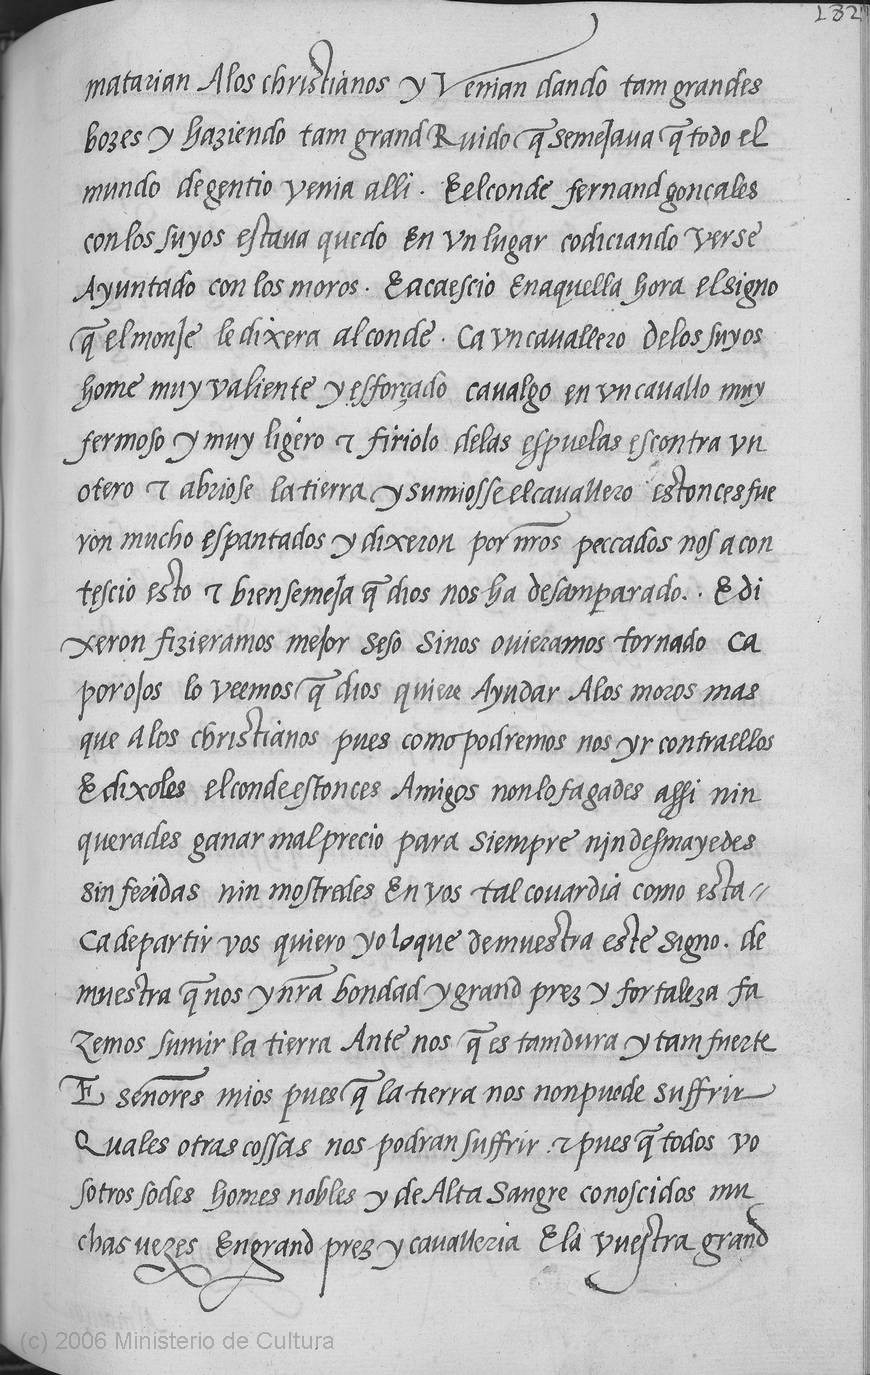 182
matarian Alos christianos y Venian dando tam grandes
bozes y haziendo tam grand Ruido q̃ semejaua q̃ todo el
mundo de gentio venia alli. E el conde fernand gonçales
con los suyos estaua quedo En vn lugar codiciando verse
Ayuntado con los moros. E acaescio En aquella hora el signo
q̃ el monje le dixera al conde. Ca vn cauallero de los suyos
home muy valiente y esforçado caualgo en vn cauallo muy
fermoso y muy ligero & firiolo de las espuelas escontra vn
otero & abriose la tierra y sumiosse el cauallero estonces fue
ron mucho espantados y dixeron por nr̃os peccados nos a con
tescio esto & bien semeja q̃ dios nos ha desamparado.. E di
xeron fizieramos mejor seso sinos ouieramos tornado ca
por ojos lo veemos q̃ dios quiere Ayudar Alos moros mas
que Alos christianos pues como podremos nos yr contra ellos
E dixoles el conde estonces Amigos non lo fagades assi nin
querades ganar mal precio para siempre nin desmayedes
sin feridas nin mostredes En vos tal couardia como esta//
Ca departir vos quiero yo lo que demuestra este signo. de
muestra q̃ nos y nr̃a bondad y grand prez y fortaleza fa
zemos sumir la tierra Ante nos q̃ es tam dura y tam fuerte
E señores mios pues q̃ la tierra nos non puede suffrir
Quales otras cossas nos podran suffrir. & pues q̃ todos vo
sotros sodes homes nobles y de Alta sangre conoscidos mu
chas vezes En grand prez y caualleria E la vuestra grand
(c) 2006 Ministerio de Cultura